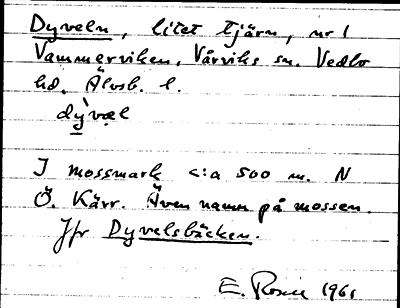 Dyveln, litet tjärn, nr 1
Vammerviken, Vårviks sn. Vedbo
hd. Älvsb. l.
dỳvəl
I mossmark c:a 500 m. N
Ö. Kärr. Även namn på mossen.
Jfr Dyvelsbäcken.
E. Rosie 1961